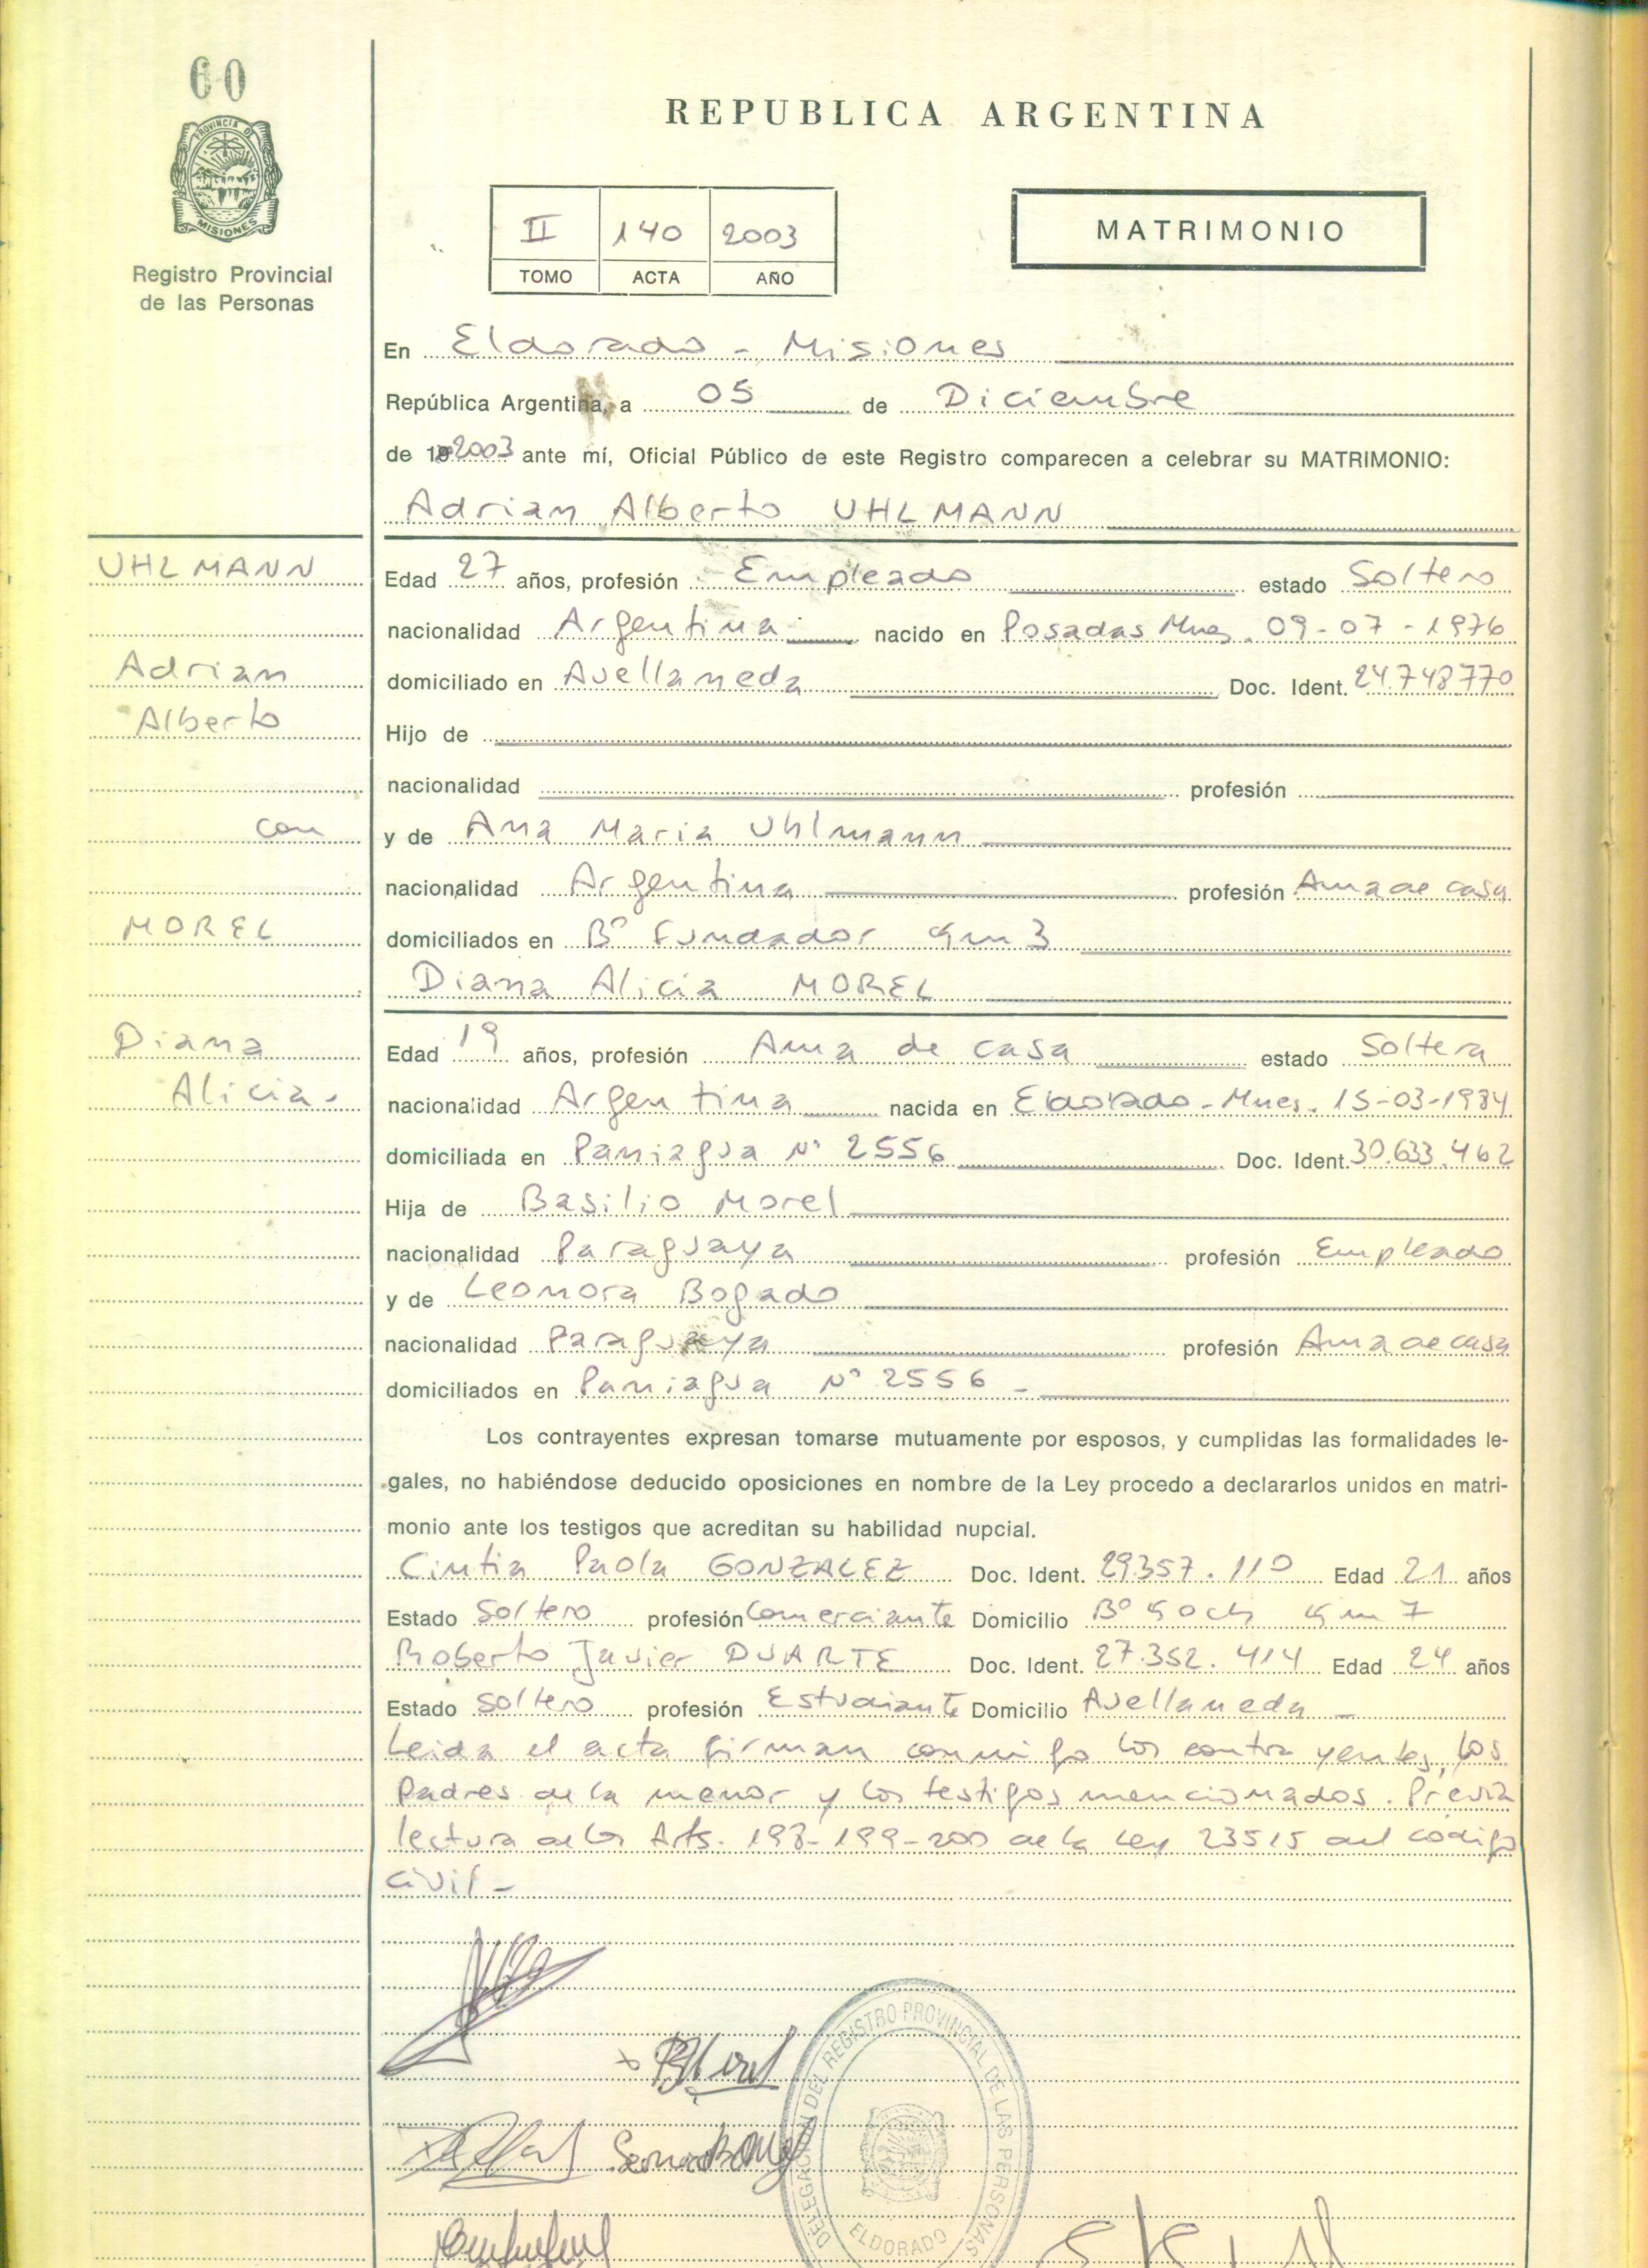 60
PROVINCIA DE
MISIONES
Registro Provincial
de las Personas
REPUBLICA ARGENTINA
II 140 2003
TOMO ACTA AÑO
MATRIMONIO
En Eldorado - Misiones
República Argentina, a 05 de Diciembre
de 19 2003 ante mí, Oficial Público de este Registro comparecen a celebrar su MATRIMONIO:
Adrian Alberto UHLMANN
UHLMANN
Adrian
Alberto
con
MOREL
Diana
Alicia.
Edad 27 años, profesión Empleado estado Soltero
nacionalidad Argentina nacido en Posadas Mnes. 09-07-1976
domiciliado en Avellaneda Doc. Ident. 24.748770
Hijo de
nacionalidad profesión
y de Ana Maria Uhlmann
nacionalidad Argentina profesión Ama de casa
domiciliados en Bº Fundador Km 3
Diana Alicia MOREL
Edad 19 años, profesión Ama de casa estado Soltera
nacionalidad Argentina nacida en Eldorado - Mnes. 15-03-1984
domiciliada en Paniagua Nº 2556 Doc. Ident. 30.633.462
Hija de Basilio Morel
nacionalidad Paraguaya profesión Empleado
y de Leonora Bogado
nacionalidad Paraguaya profesión Ama de casa
domiciliados en Paniagua Nº 2556 -
Los contrayentes expresan tomarse mutuamente por esposos, y cumplidas las formalidades le-
gales, no habiéndose deducido oposiciones en nombre de la Ley procedo a declararlos unidos en matri-
monio ante los testigos que acreditan su habilidad nupcial.
Cintia Paola GONZALEZ Doc. Ident. 29.357.110 Edad 21 años
Estado Soltero profesión Comerciante Domicilio Bº Koch Km 7
Roberto Javier DUARTE Doc. Ident. 27.352.414 Edad 24 años
Estado Soltero profesión Estudiante Domicilio Avellaneda -
Leida el acta firman conmigo los contrayentes, los
Padres de la menor y los testigos mencionados. Previa
lectura de los Arts. 198-199-200 de la Ley 23515 del codigo
civil -
DELEGACION DEL REGISTRO PROVINCIAL DE LAS PERSONAS
ELDORADO